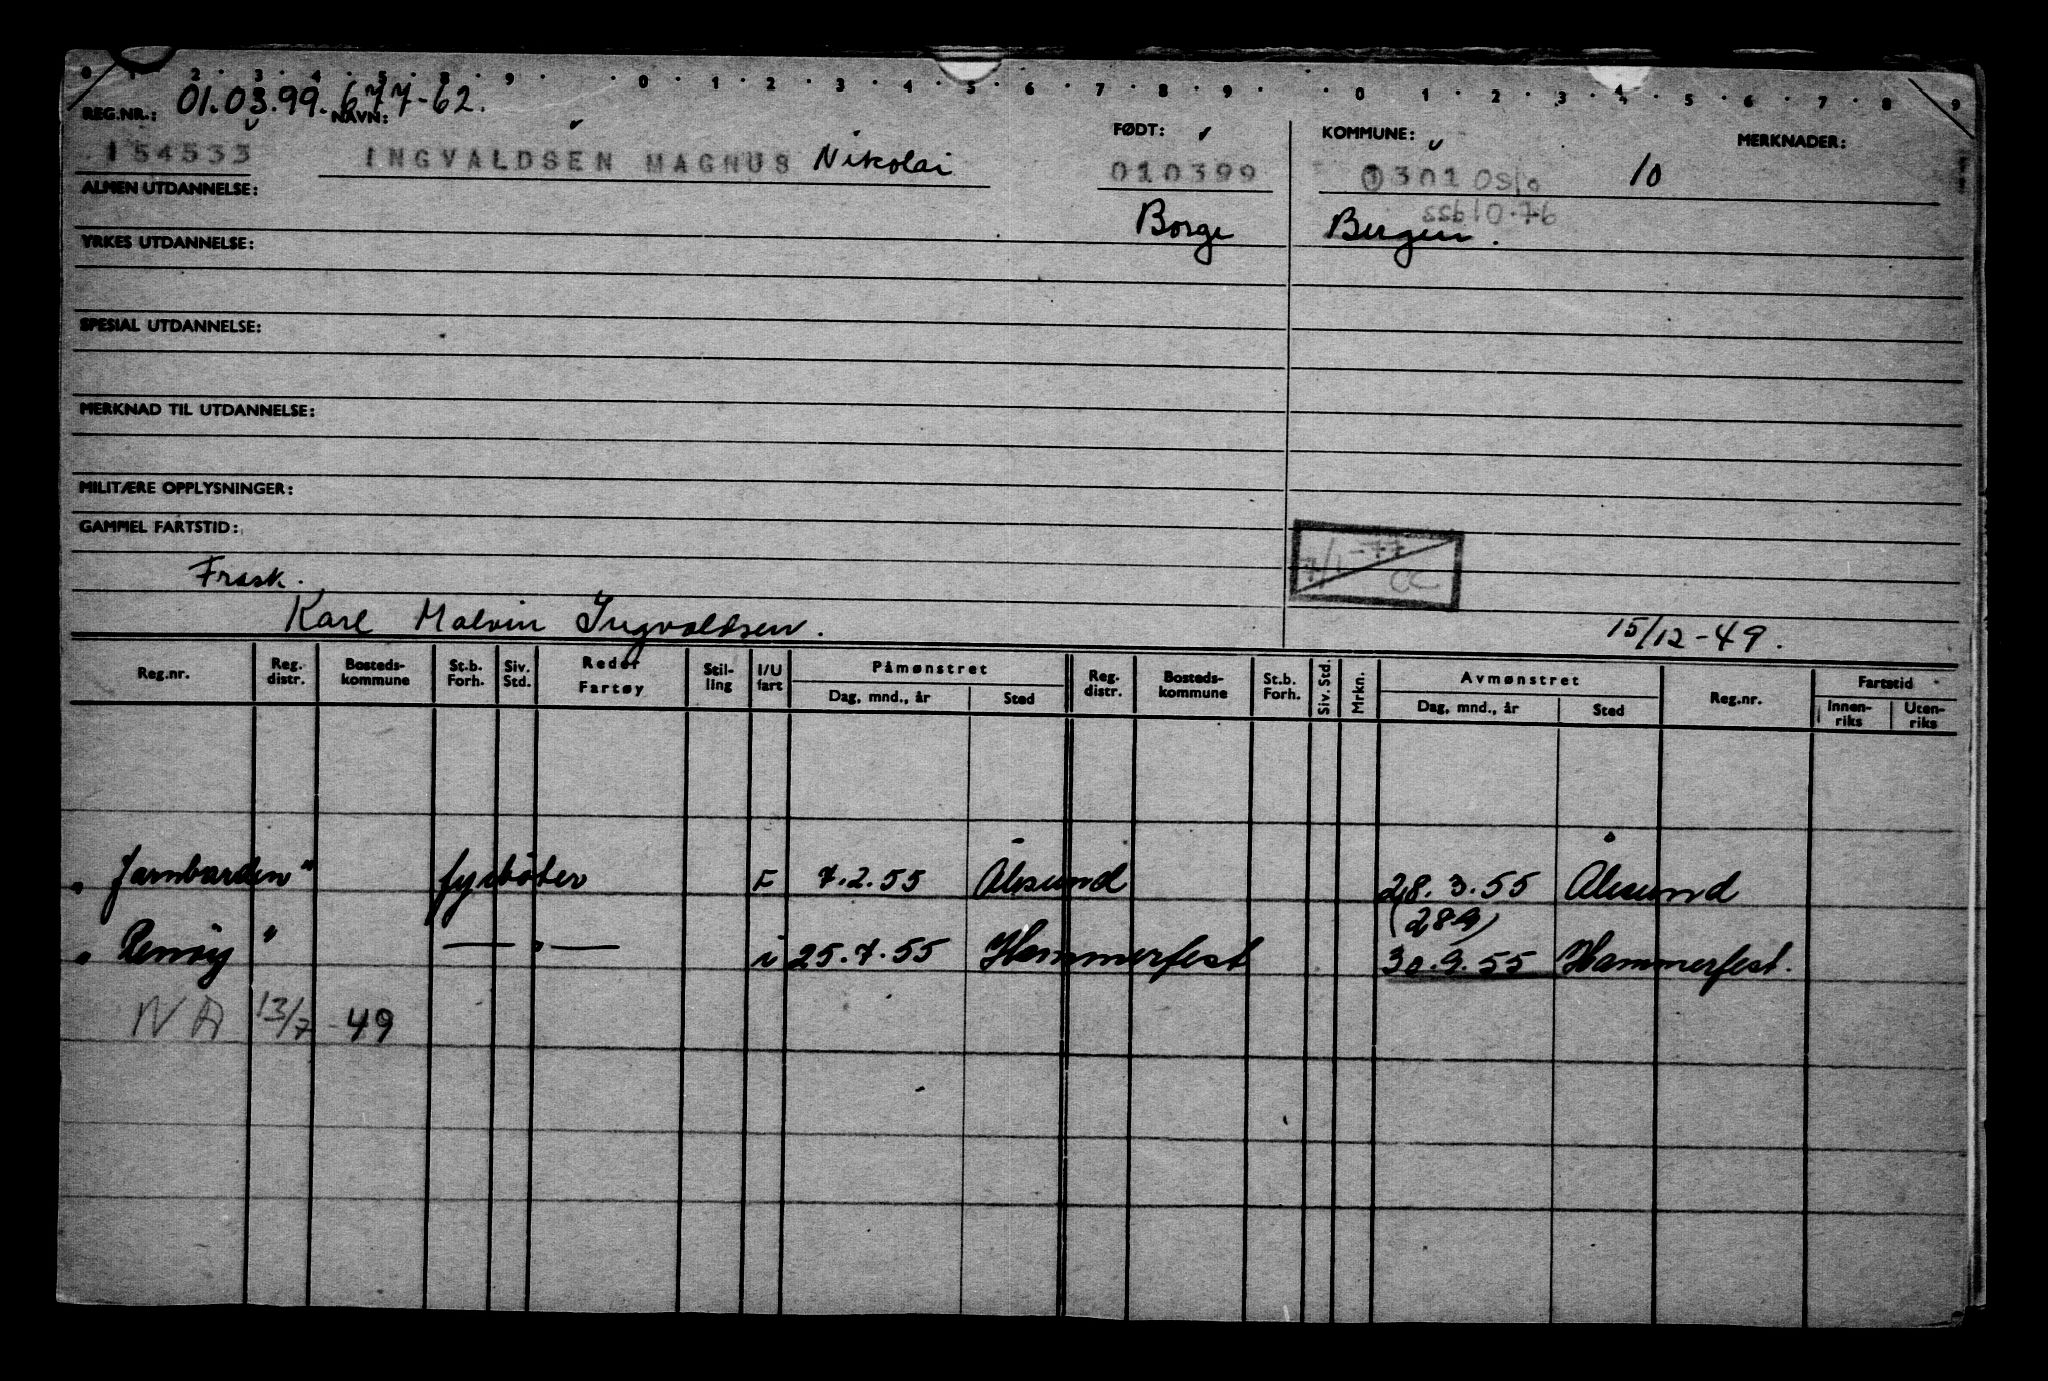 0 1 · 2 · 3 · 4 · 5 · 8 · 9 · · 0 · 1 · 2 · 3 · 4 · 5 · 6 · 7 · 8 · 9 · · 0 · 1 · 2 · 3 · 4 · 5 · 6 · 7 · 8 · 9
REG.NR.: 01.03.99. 677-62. NAVN: FØDT: KOMMUNE: MERKNADER:
154533 INGVALDSEN MAGNUS Nikolai 010399 0301 Oslo 10
ALMEN UTDANNELSE: Borge Bergen. ssb10.76
YRKES UTDANNELSE:
SPESIAL UTDANNELSE:
MERKNAD TIL UTDANNELSE:
MILITÆRE OPPLYSNINGER:
GAMMEL FARTSTID:
7/1-77
Frask.
Karl Malvin Ingvaldsen. 15/12-49.
Reg.nr. Reg. distr. Bosteds-kommune St.b. Forh. Siv. Std. Reder Fartøy Stil-ling I/U fart Påmønstret Dag, mnd., år Sted Reg. distr. Bosteds-kommune St.b. Forh. Siv. Std. Mrkn. Avmønstret Dag, mnd., år Sted Reg.nr. Fartstid Innen-riks Uten-riks
„Jarnbarden" fyrbøter F 7.2.55 Ålesund 28.3.55 Ålesund
(289)
" " — " — i 25.7.55 Hammerfest 30.9.55 Hammerfest.
NA 13/7-49